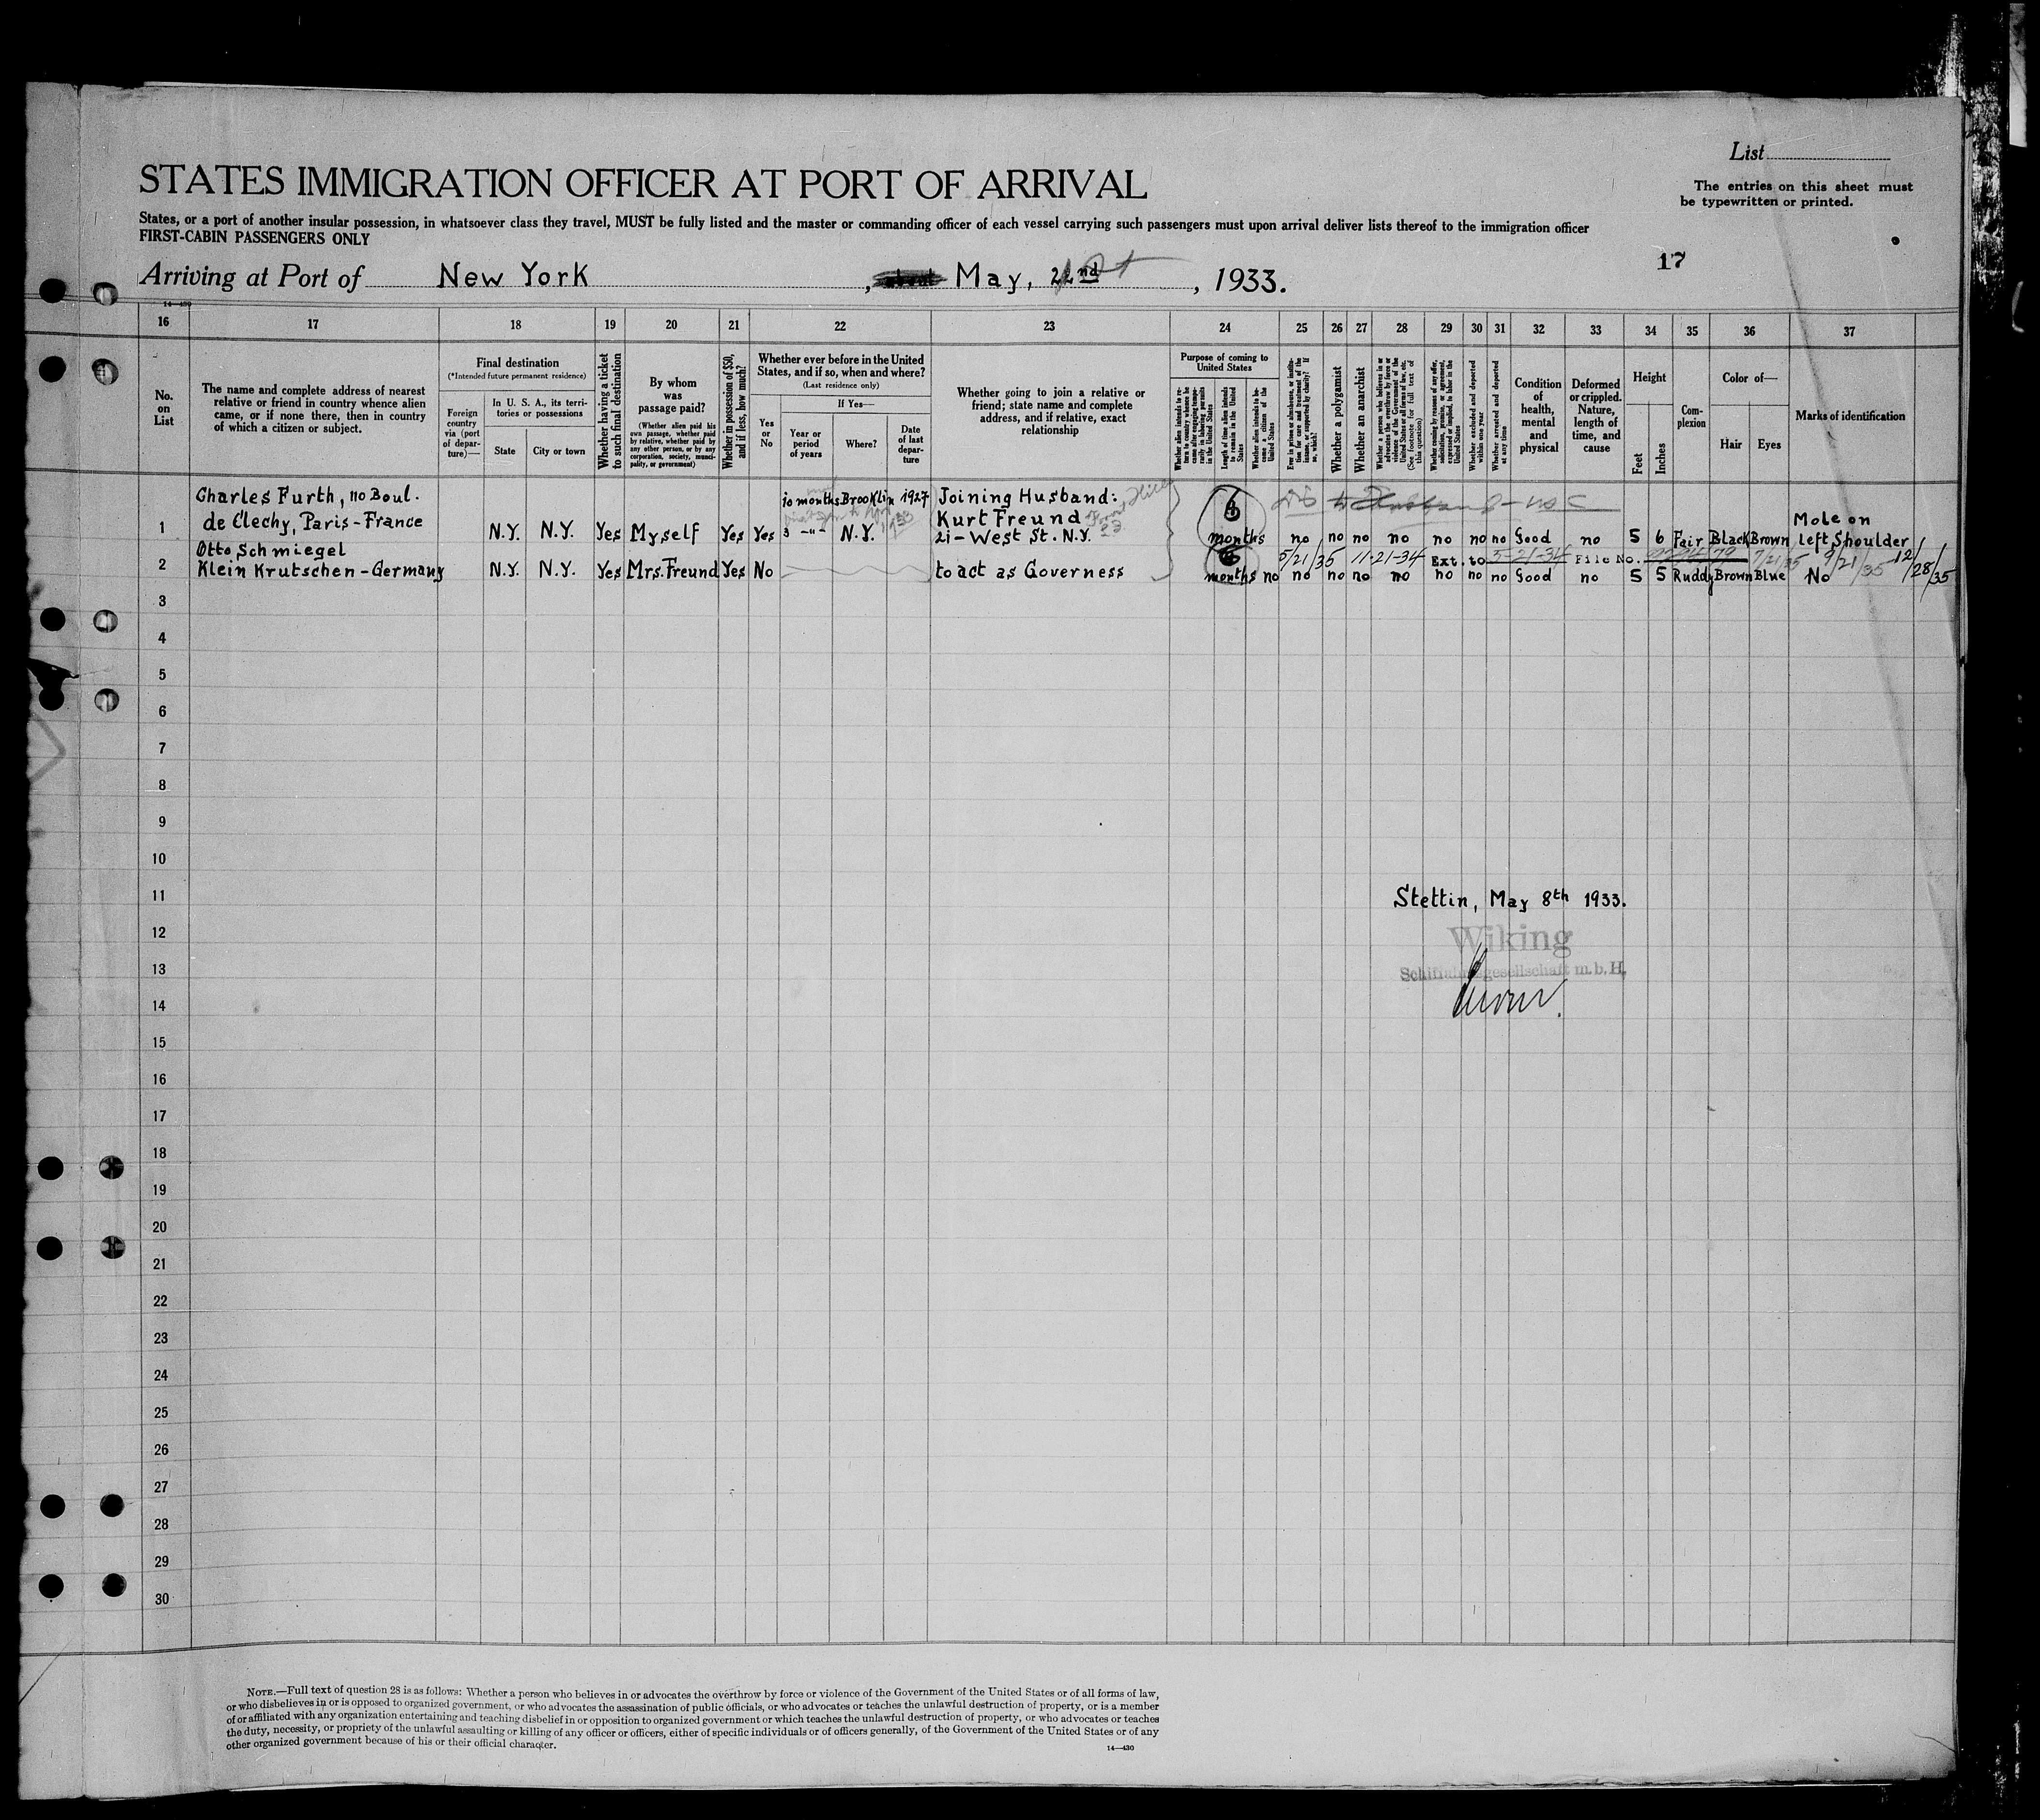 List
STATES IMMIGRATION OFFICER AT PORT OF ARRIVAL
The entries on this sheet must
be typewritten or printed.
States, or a port of another insular possession, in whatsoever class they travel, MUST be fully listed and the master or commanding officer of each vessel carrying such passengers must upon arrival deliver lists thereof to the immigration officer
FIRST-CABIN PASSENGERS ONLY
17
Arriving at Port of New York, May, 22nd, 1933.
14—430
16 17 18 19 20 21 22 23 24 25 26 27 28 29 30 31 32 33 34 35 36 37
No.
on
List
The name and complete address of nearest
relative or friend in country whence alien
came, or if none there, then in country
of which a citizen or subject.
Final destination
(*Intended future permanent residence)
Foreign
country
via (port
of depar-
ture)—
In U. S. A., its terri-
tories or possessions
State
City or town
Whether having a ticket
to such final destination
By whom
was
passage paid?
(Whether alien paid his
own passage, whether paid
by relative, whether paid by
any other person, or by any
corporation, society, munici-
pality, or government)
Whether in possession of $50,
and if less, how much?
Whether ever before in the United
States, and if so, when and where?
(Last residence only)
Yes
or
No
If Yes—
Year or
period
of years
Where?
Date
of last
depar-
ture
Whether going to join a relative or
friend; state name and complete
address, and if relative, exact
relationship
Purpose of coming to
United States
Whether alien intends to re-
turn to country whence he
came after engaging tempo-
rarily in laboring pursuits
in the United States
Length of time alien intends
to remain in the United
States
Whether alien intends to be-
come a citizen of the
United States
Ever in prison or almshouse, or institu-
tion for care and treatment of the
insane, or supported by charity? If
so, which?
Whether a polygamist
Whether an anarchist
Whether a person who believes in or
advocates the overthrow by force or
violence of the Government of the
United States or all forms of law, etc.
(See footnote for full text of
this question)
Whether coming by reason of any offer,
solicitation, promise, or agreement,
expressed or implied, to labor in the
United States
Whether excluded and deported
within one year
Whether arrested and deported
at any time
Condition
of
health,
mental
and
physical
Deformed
or crippled.
Nature,
length of
time, and
cause
Height
Feet
Inches
Com-
plexion
Color of—
Hair
Eyes
Marks of identification
Charles Furth, 110 Boul.
de Clechy, Paris-France
10 months Brooklin 1927
3 -"- N.Y.
Joining Husband:
Kurt Freund
21-West St. N.Y.
Forest Hills
1 N.Y. N.Y. Yes Myself Yes Yes 6 months no no no no no no no Good no 5 6 Fair Black Brown
Mole on
left Shoulder
Otto Schmiegel
Klein Krutschen-Germany
5/21/35 11-21-34 Ext. to 5-21-34 File No. 7/21/35 9/21/35 12/28/35
2 N.Y. N.Y. Yes Mrs. Freund Yes No to act as Governess 6 months no no no no no no no no Good no 5 5 Ruddy Brown Blue No
3
4
5
6
7
8
9
10
11
Stettin, May 8th 1933.
12
Wiking
13
Schiffahrtsgesellschaft m.b.H.
14
15
16
17
18
19
20
21
22
23
24
25
26
27
28
29
30
NOTE.—Full text of question 28 is as follows: Whether a person who believes in or advocates the overthrow by force or violence of the Government of the United States or of all forms of law,
or who disbelieves in or is opposed to organized government, or who advocates the assassination of public officials, or who advocates or teaches the unlawful destruction of property, or is a member
of or affiliated with any organization entertaining and teaching disbelief in or opposition to organized government or which teaches the unlawful destruction of property, or who advocates or teaches
the duty, necessity, or propriety of the unlawful assaulting or killing of any officer or officers, either of specific individuals or of officers generally, of the Government of the United States or of any
other organized government because of his or their official character.
14—430